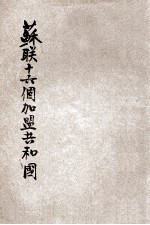 蘇联十六個加盟共和國